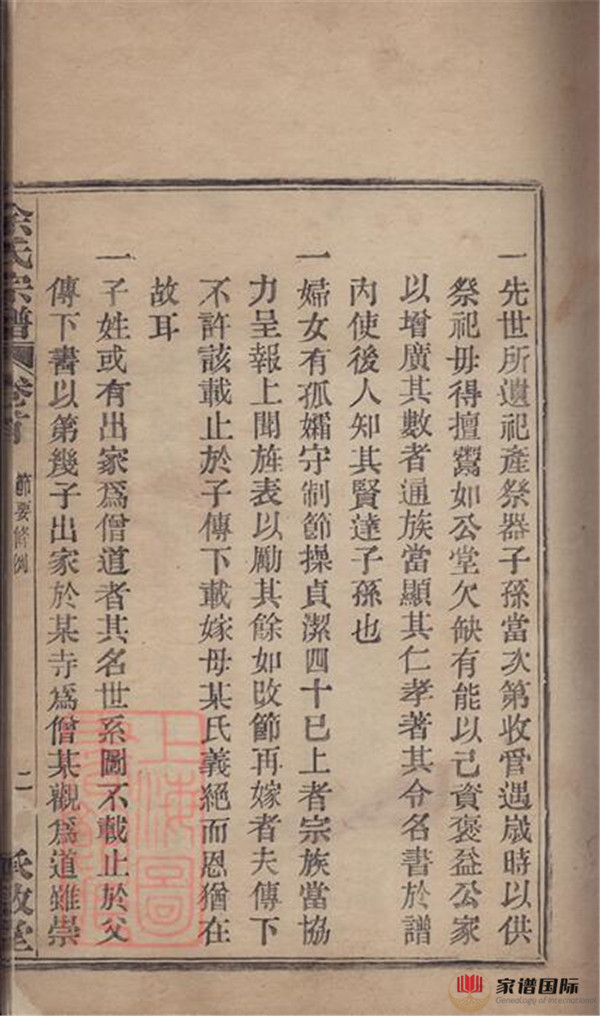 一先世所遺祀產祭器子孫當次第收管遇歲時以供
祭祀毋得擅鬻如公堂欠缺有能以己資褒益公家
以增廣其數者通族當顯其仁孝著其令名書於譜
內使後人知其賢達子孫也
一婦女有孤孀守制節操貞潔四十已上者宗族當協
力呈報上聞旌表以勵其餘如改節再嫁者夫傳下
不許該載止於子傳下載嫁母某氏義絕而恩猶在
故耳
一子姓或有出家爲僧道者其名世系圖不載止於父
傳下書以第幾子出家於某寺爲僧某觀爲道雖崇
氏宗譜 卷首 節要條例 二
上海圖
家谱国际
Genealogy of International